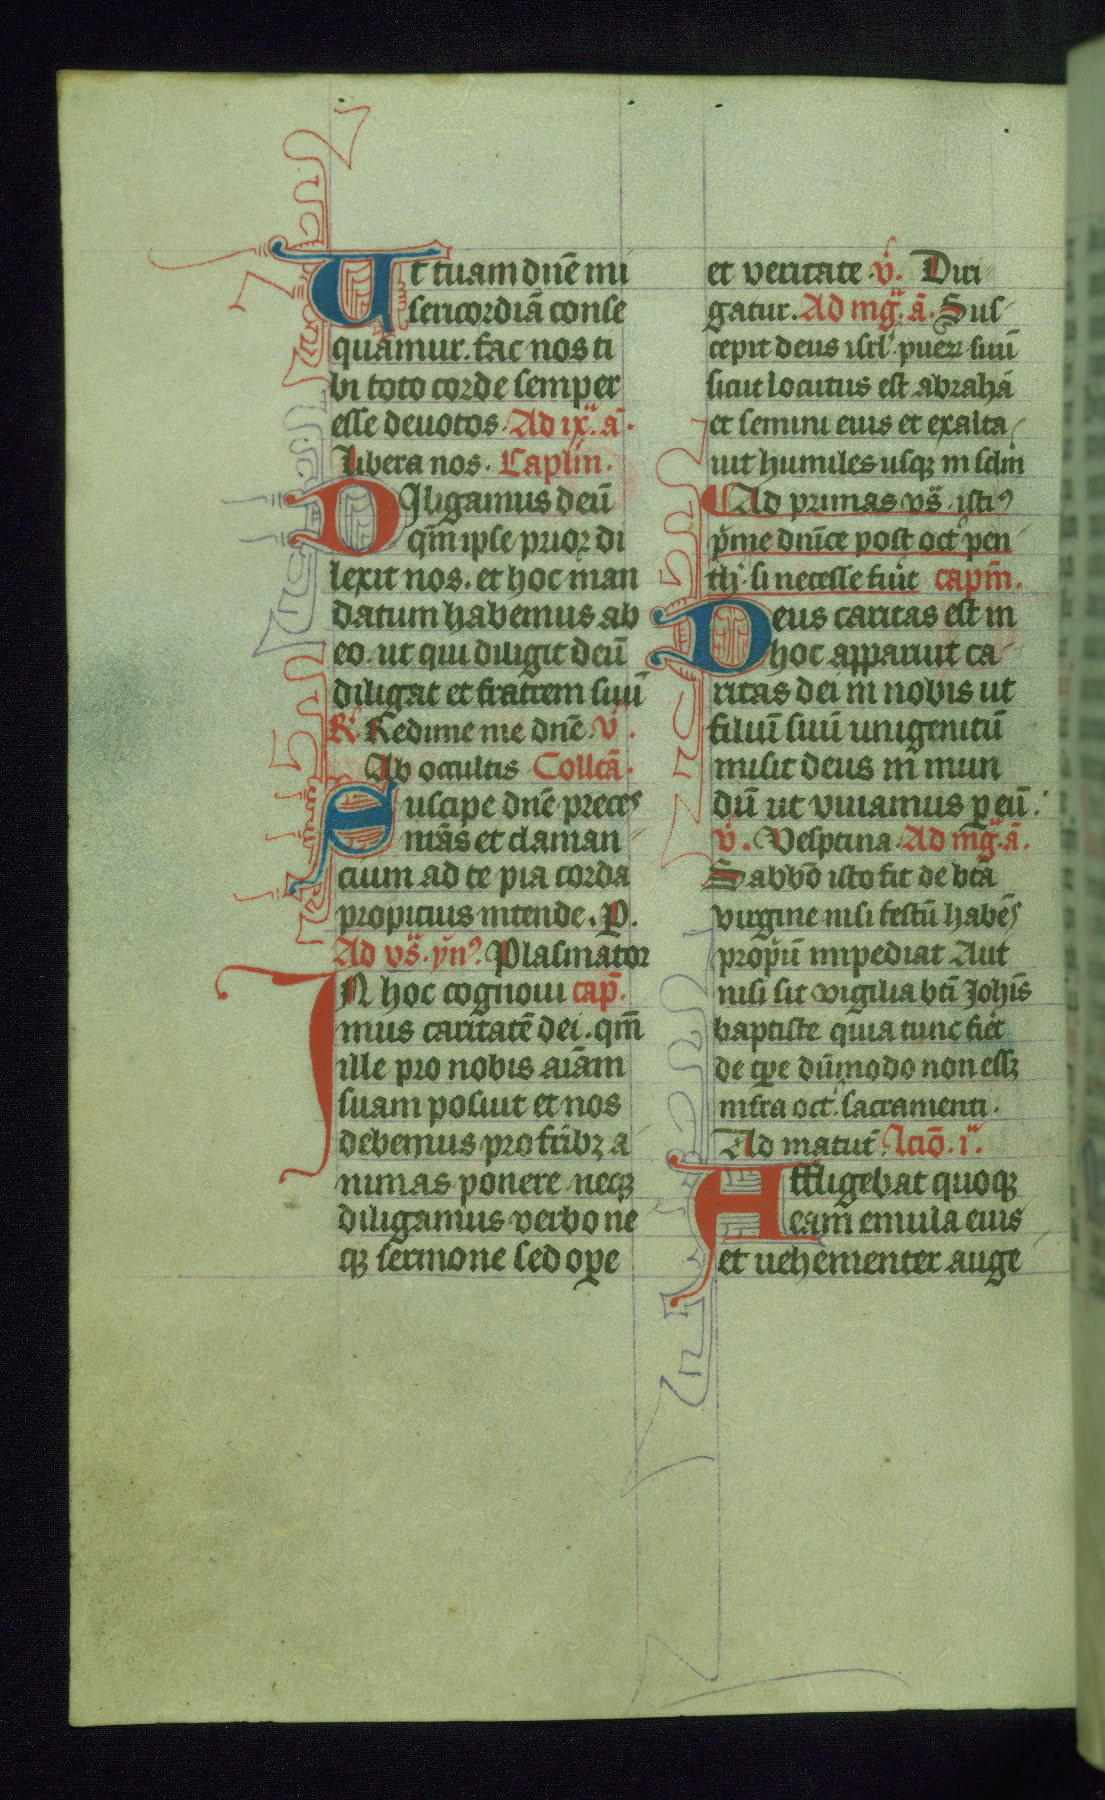 Ut tuam dn̄e mi
sericordiā conse
quamur. fac nos ti
bi toto corde semper
esse deuotos. Ad ix.ᵃ ā.
Libera nos. Caplm̄.
Diligamus deū
qm̄ ipse prior di
lexit nos. et hoc man
datum habemus ab
eo. ut qui diligit deū
diligat et fratrem suū
R̸. Redime me dn̄e. v̄.
Ab occultis Collcā.
Suscipe dn̄e preces
nr̄as et claman
cium ad te pia corda
propicius intende. P.
Ad vs̄. ẏn᾽. Plasmator
IN hoc cognoui cap̄.
mus caritatē dei. qm̄
ille pro nobis aīam
suam posuit et nos
debemus pro fr̄ibꝫ a
nimas ponere neqꝫ
diligamus verbo ne
qꝫ sermone sed oꝑe
et veritate. v̄. Diri
gatur. Ad mḡ.ᵃ ā. Sus
cepit deus isrl᾽. pueꝝ suū
sicut locutus est abrahā
et semini eius et exalta
uit humiles usqꝫ in sclm̄
Ad primas vs̄. isti᾽
p̄me dn̄ice post oct᾽ pen
th᾽. si necesse fuīt capm̄.
Deus caritas est in
hoc apparuit ca
ritas dei in nobis ut
filiū suū unigenitū
misit deus in mun
dū ut viuamus ꝑ eū.
v̄. Vesꝑtina. Ad mḡ.ᵃ ā.
Sabb̄o isto fit de btā
virgine nisi festū habēs
propriū impediat Aut
nisi sit vigilia bt̄i Joh̄is
baptiste quia tunc fiet
de tꝑe dūmodo non essꝫ
infra oct᾽. sacramenti.
Ad matut᾽. Lcio̅. i.ᵃ
Affligebat quoqꝫ
eam emula eius
et uehementer auge